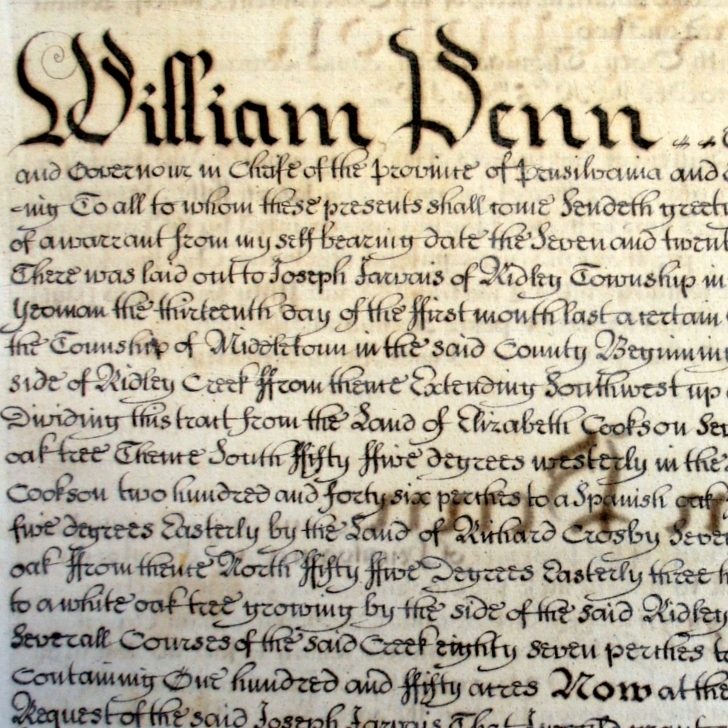 William Penn
and Governour in Cheife of the province of Pensilvania and
-ing To all to whom these presents shall come Sendeth greet
of a warrant from my self bearing date the Seven and twent
There was laid out to Joseph Jarvais of Ridley Township in
Yeoman the thirteenth day of the ffirst month last a certain
the Township of Middletown in the said County Beginning
side of Ridley Creek ffrom thence Extending Southwest up
Dividing this tract from the Land of Elizabeth Cookson Se
oak tree Thence South ffifty ffive degrees westerly in the
Cookson two hundred and forty six perches to a Spanish oak
five degrees Easterly by the Land of Richard Crosby Seve
oak ffrom thence North ffifty ffive Degrees Easterly three h
to a white oak tree growing by the side of the said Ridley
Severall Courses of the said Creek eighty seven perches t
Containing One hundred and ffifty acres Now at the
Request of the said Joseph Jarvais That